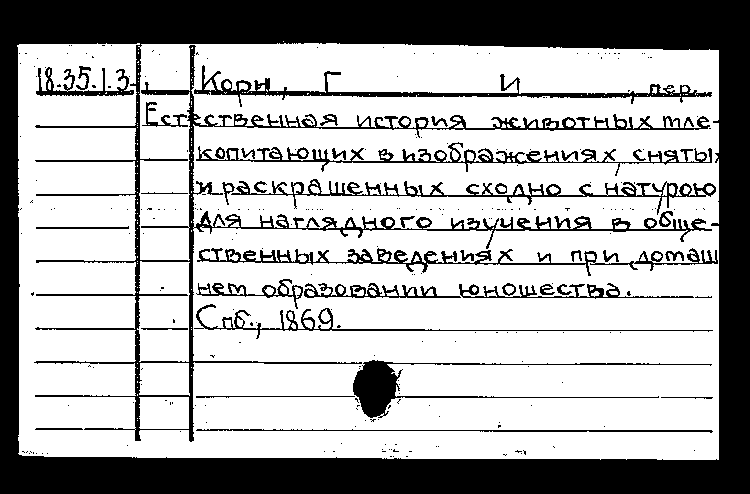 18.35.1.3. Корн, Г И , пер.
Естественная история животных мле-
копитающих в изображениях, снятых
и раскрашенных сходно с натурою
для наглядного изучения в обще-
ственных заведениях и при домаш
нем образовании юношества.
Спб., 1869.